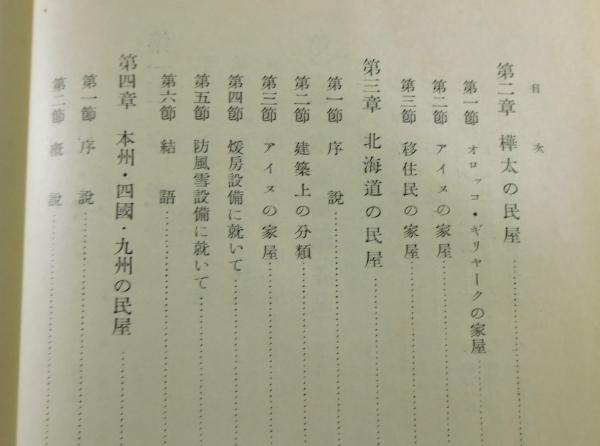 目次
第二章 樺太の民屋
第一節 オロッコ・ギリヤークの家屋
第二節 アイヌの家屋
第三節 移住民の家屋
第三章 北海道の民屋
第一節 序説
第二節 建築上の分類
第三節 アイヌの家屋
第四節 煖房設備に就いて
第五節 防風雪設備に就いて
第六節 結語
第四章 本州・四國・九州の民屋
第一節 序説
第二節 概説